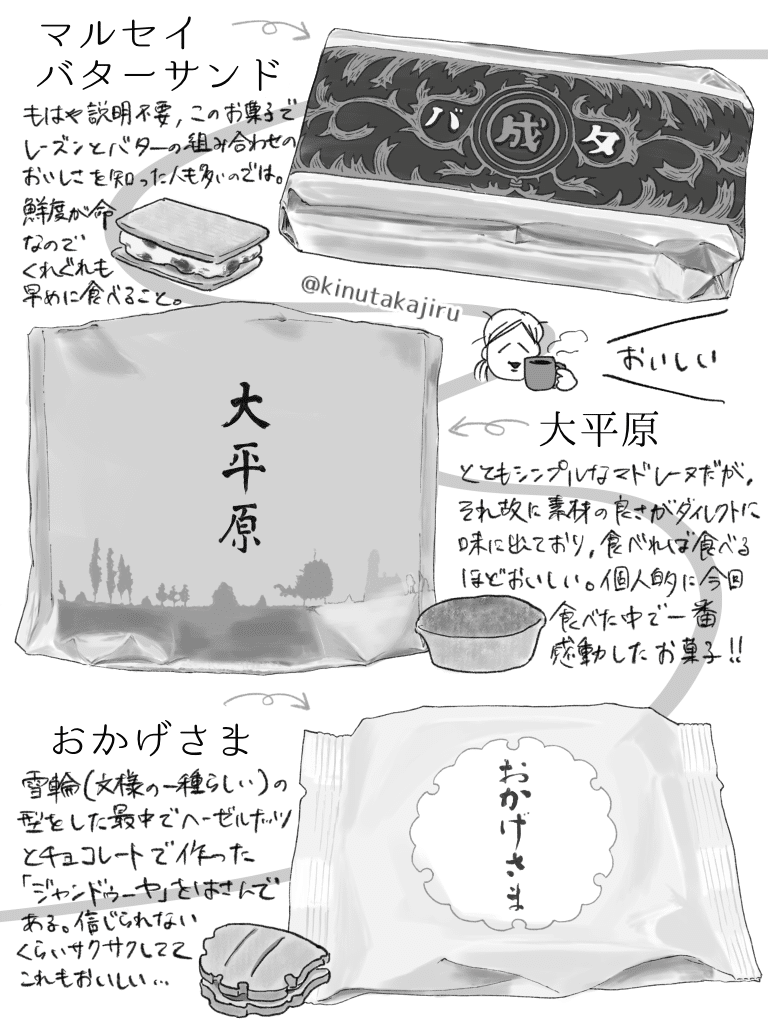 マルセイ
バターサンド
もはや説明不要,このお菓子で
レーズンとバターの組み合わせの
おいしさを知った人も多いのでは。
鮮度が命
なので
くれぐれも
早めに食べること。
バ 成 タ
@kinutakajiru
おいしい
大平原
大平原
とてもシンプルなマドレーヌだが,
それ故に素材の良さがダイレクトに
味に出ており,食べれば食べる
ほどおいしい。個人的に今回
食べた中で一番
感動したお菓子!!
おかげさま
雪輪(文様の一種らしい)の
型をした最中でヘーゼルナッツ
とチョコレートで作った
「ジャンドゥーヤ」をはさんで
ある。信じられない
くらいサクサクしてて
これもおいしい…
おかげさま